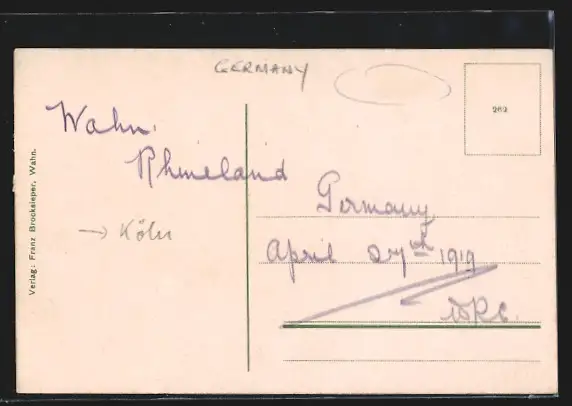 GERMANY
Wahn.
Rhineland
→ Köln
Germany
April 27th 1919
262
Verlag: Franz Brocksieper, Wahn.